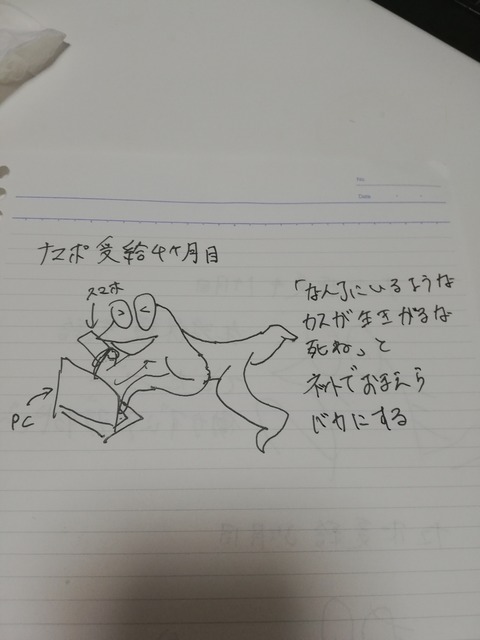 No.
Date
ナマポ受給4ヶ月目
スマホ
PC
「なんJにいるような
カスが生きがるな
死ね」と
ネットでおまえら
バカにする